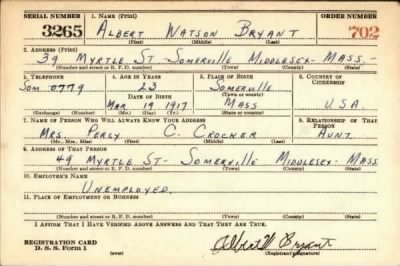 SERIAL NUMBER 1. NAME (Print) ORDER NUMBER
3265 ALBERT WATSON BRYANT 702
(First) (Middle) (Last)
2. ADDRESS (Print)
39 MYRTLE ST - SOMERVILLE MIDDLESEX - MASS. -
(Number and street or R. F. D. number) (Town) (County) (State)
3. TELEPHONE 4. AGE IN YEARS 5. PLACE OF BIRTH 6. COUNTRY OF CITIZENSHIP
SOM 0779 23 SOMERVILLE
DATE OF BIRTH (Town or county)
MAR 19 1917 MASS U.S.A.
(Exchange) (Number) (Mo.) (Day) (Yr.) (State or country)
7. NAME OF PERSON WHO WILL ALWAYS KNOW YOUR ADDRESS 8. RELATIONSHIP OF THAT PERSON
MRS. PERCY C. CROCKER AUNT
(Mr., Mrs., Miss) (First) (Middle) (Last)
9. ADDRESS OF THAT PERSON
49 MYRTLE ST - SOMERVILLE MIDDLESEX - MASS
(Number and street or R. F. D. number) (Town) (County) (State)
10. EMPLOYER'S NAME
UNEMPLOYED
11. PLACE OF EMPLOYMENT OR BUSINESS
(Number and street or R. F. D. number) (Town) (County) (State)
I AFFIRM THAT I HAVE VERIFIED ABOVE ANSWERS AND THAT THEY ARE TRUE.
REGISTRATION CARD Albert W Bryant
D. S. S. Form 1 (over) (Registrant's signature)